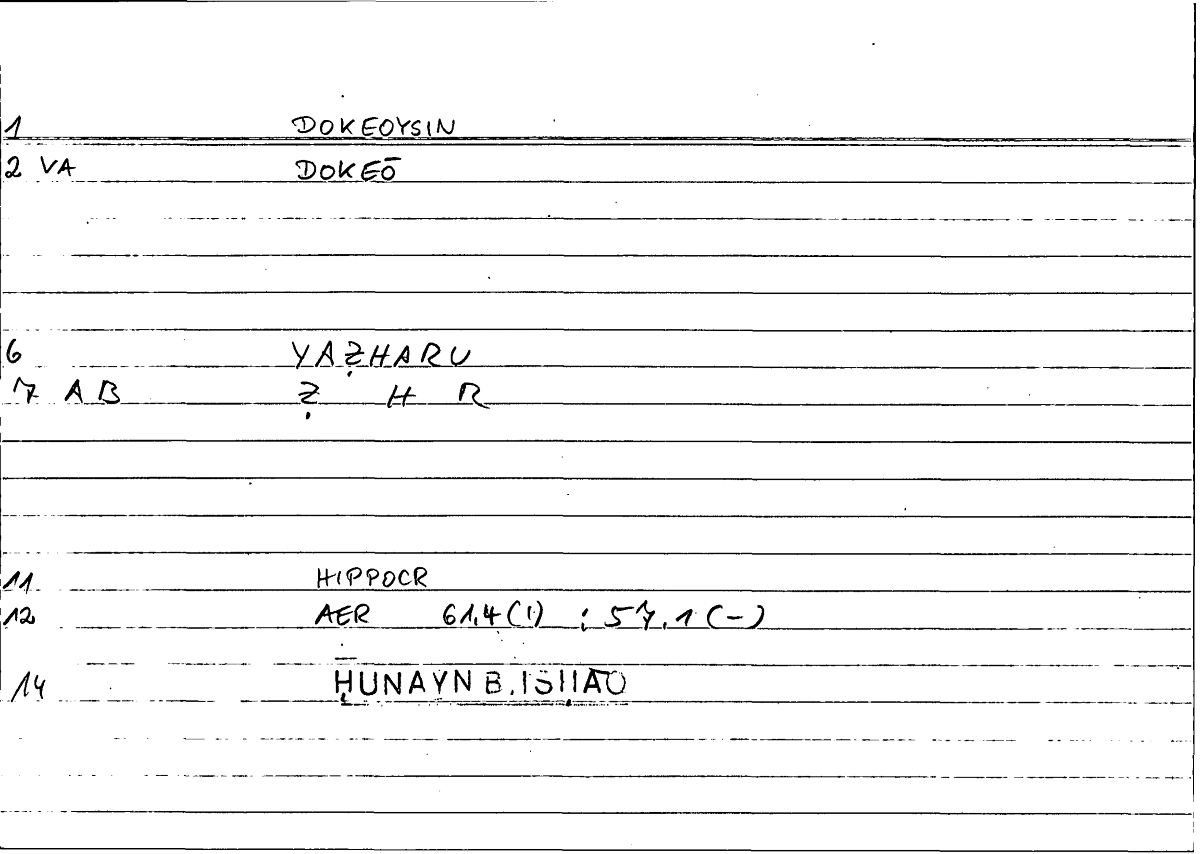 1 DOKEOYSIN
2 VA DOKEŌ
6 YAẒHARU
7 AB Ẓ H R
11 HIPPOCR
12 AER 61,4(1) ; 57,1(-)
14 ḤUNAYN B. ISḤĀQ